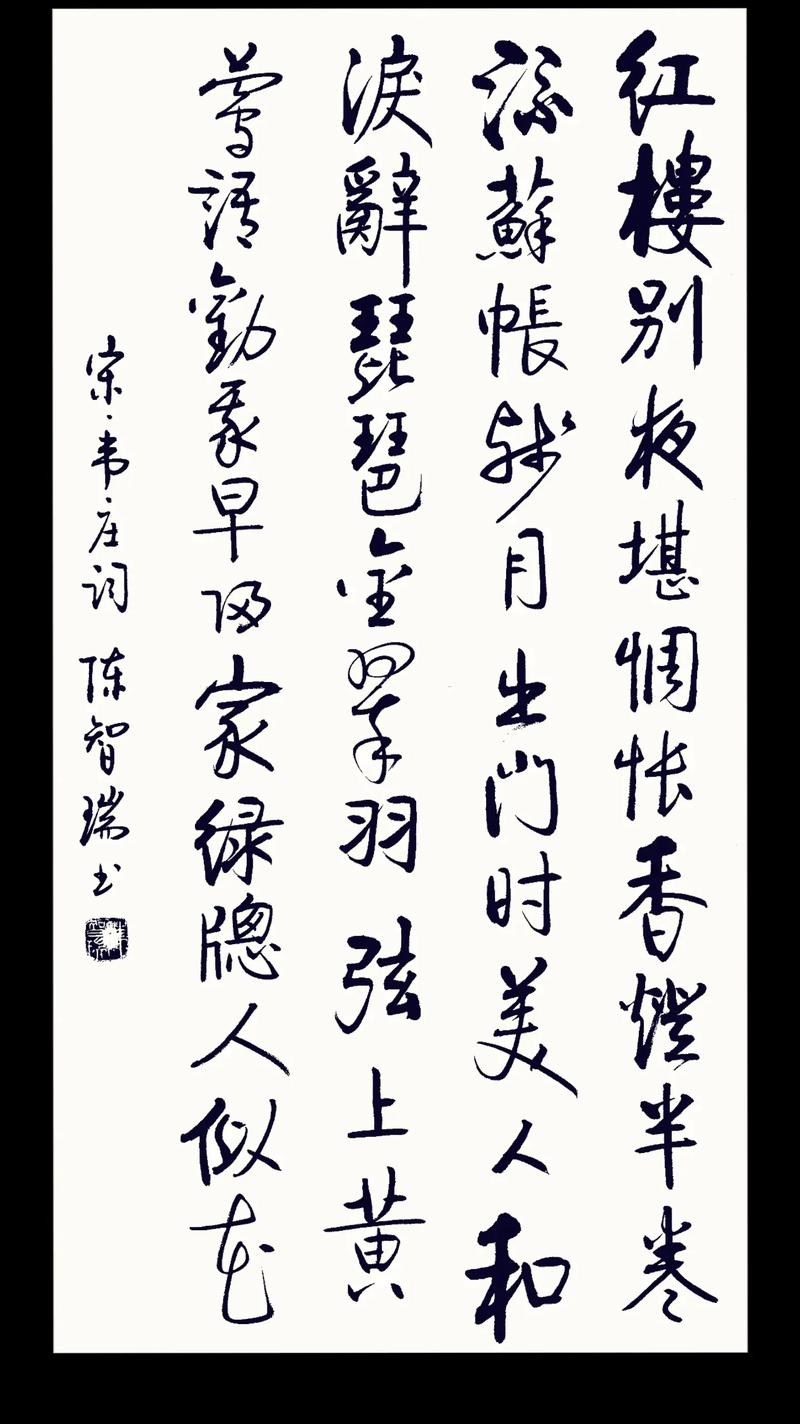 红樓别夜堪惆怅香燈半卷
流蘇帳残月出門时美人和
淚辭琵琶金翠羽弦上黄
莺語勸我早归家緑牕人似花
宋·韦庄词 陈智瑞书